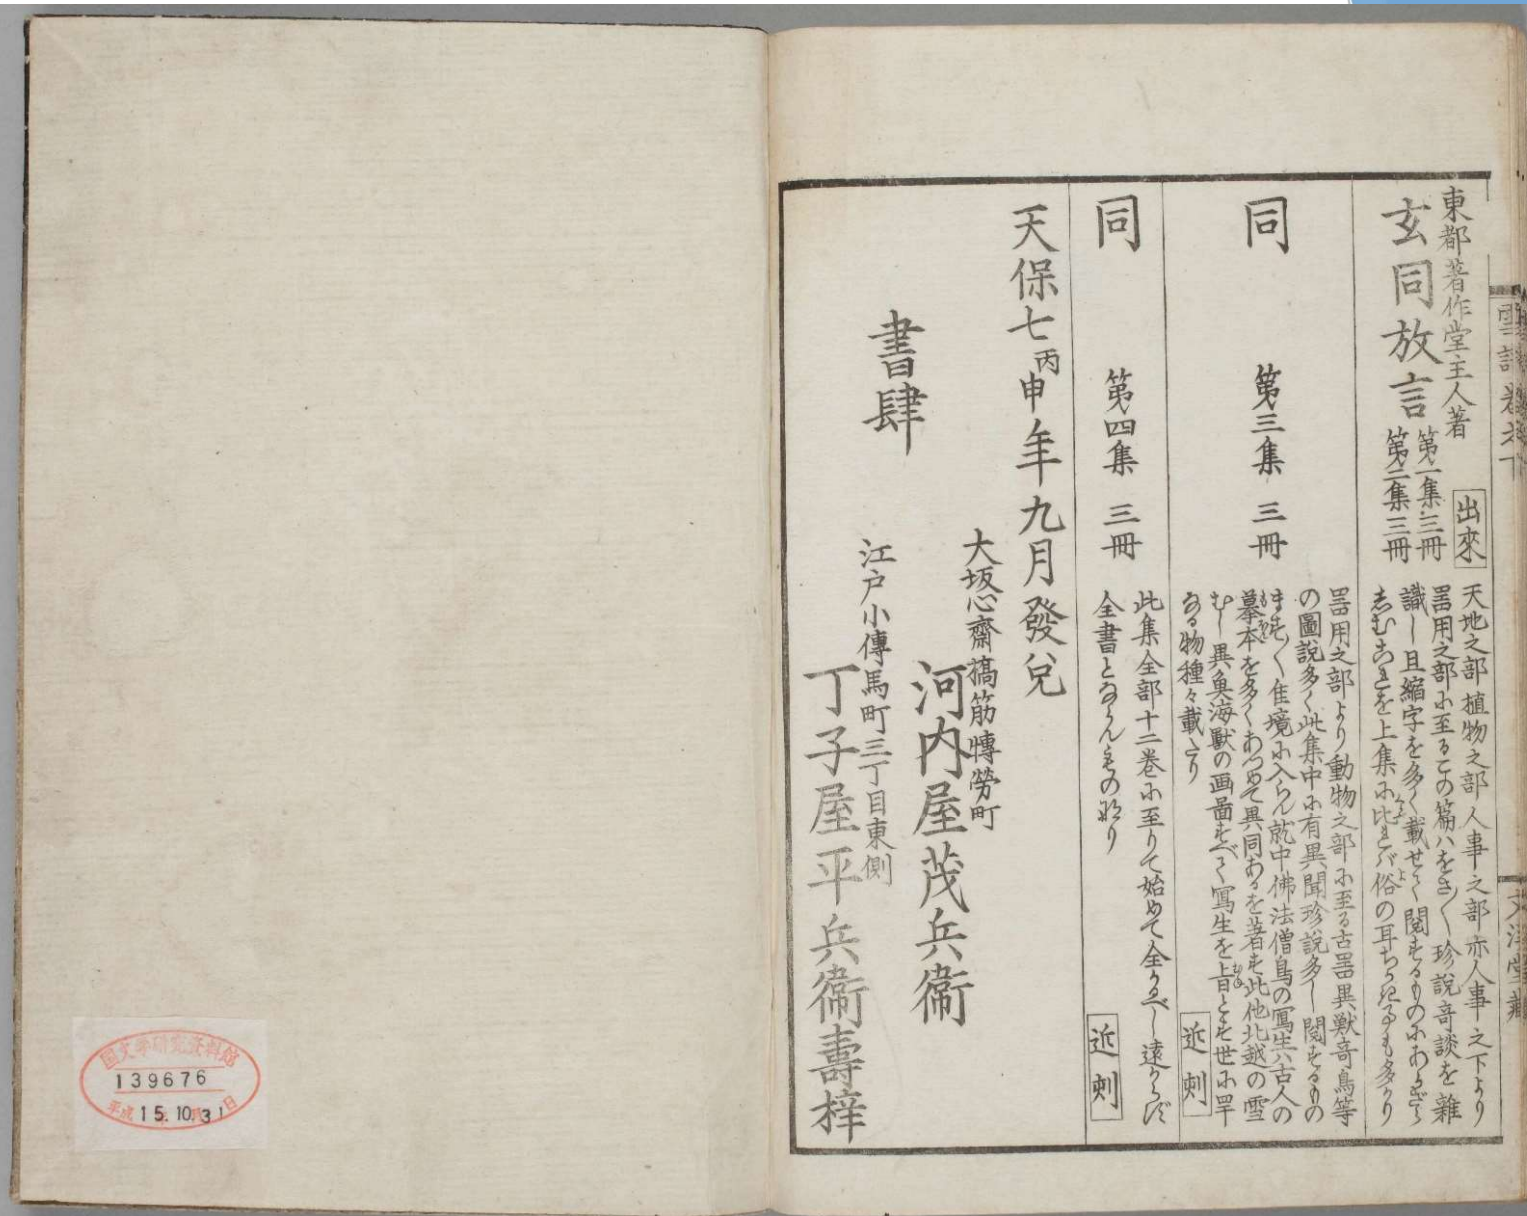 東都著作堂主人著
玄同放言
第一集三冊
第二集三冊
出來
天地之部植物之部人事之部亦人事之下より
噐用之部に至るこの篇ハをさ〳〵珍說奇談を雜
識し且縮字を多く載せて閱するものにあかざら
しむこれを上集に比れバ俗の耳ちかき事も多かり
同
第三集 三冊
噐用之部より動物之部に至る古噐異獸奇鳥等
の圖說多く此集中に有異聞珍說多し閱するもの
ます〳〵佳境に入らん就中佛法僧鳥の寫生ハ古人の
摹本を多くあつめて異同あるを著す此他北越の雪
むし異魚海獸の画啚すべて寫生を旨とす世に罕
なる物種々載たり
近刻
同
第四集 三冊
此集全部十二卷に至りて始めて全かるべし遠からず
全書とならんもの也
近刻
天保七丙申年九月發兌
書肆
大坂心齋橋筋博勞町
河内屋茂兵衞
江戸小傳馬町三丁目東側
丁子屋平兵衞壽梓
国文学研究資料館
139676
平成15.10.31日